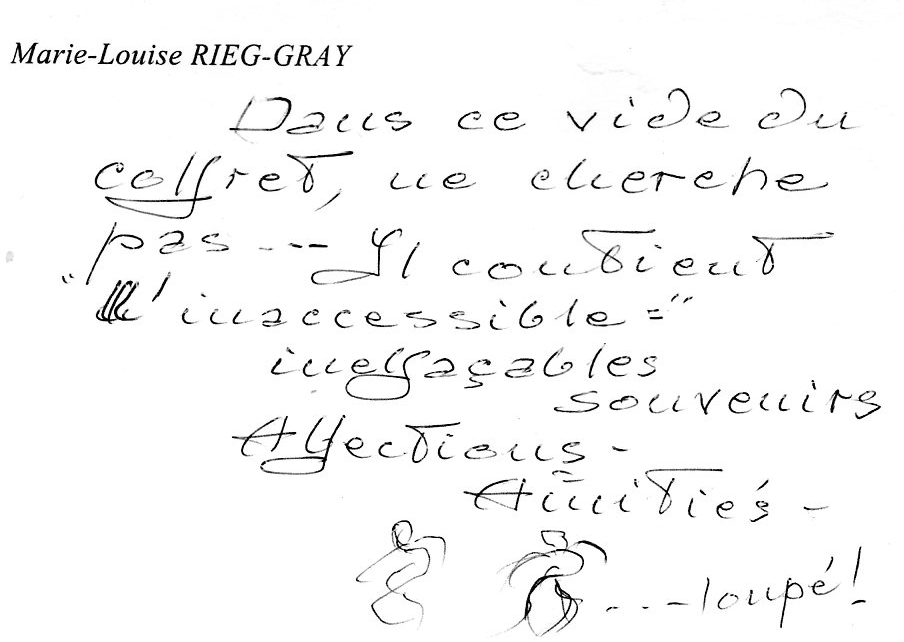 Marie-Louise RIEG-GRAY
Dans ce vide du
coffret, ne cherche
pas --- Il contient
"l'inaccessible="
ineffaçables
souvenirs
Affections -
Amitiés -
...-loupé!